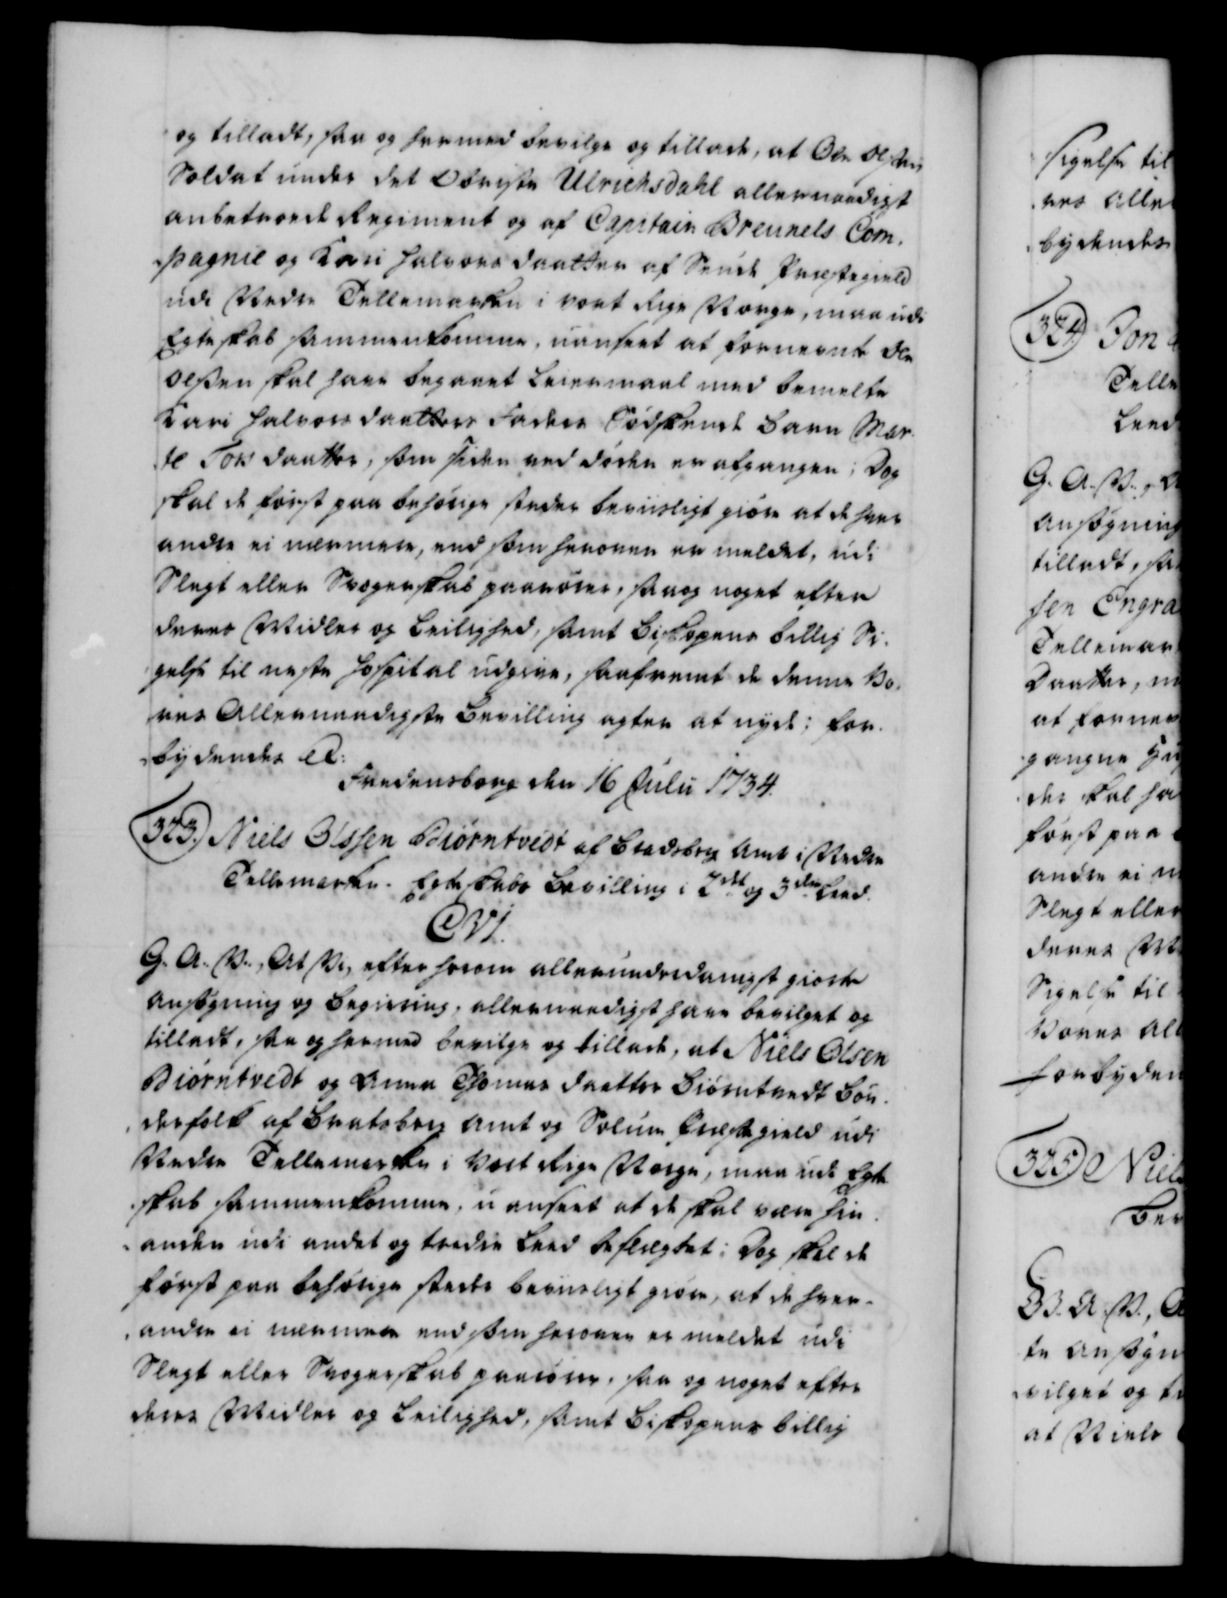 og tilladt, saa og hermed bevilge og tillade, at Ole Olssen
Soldat under det Obriste Ulrichsdahl allernaadigst
anbetroede Regiment og af Capitain Breunels Com-
pagnie og Kari Halvors daatter af Præstegield
udi Nedre Tellemarken i vort Rige Norge, maa udi
Egteskab sammenkomme, uanseet at fornevnte Ole
Olssen skal have begaaet Leiermaal med bemelte
Kari Halvors daatters Faders Sødskende Barn Mar-
te Tors daatter, som siden ved døden er afgangen; Dog
skal de først paa behørige steder beviisligt giøre at de hver
andre ei nærmere, end som herover er meldet, udi
Slegt eller Svogerskab paarører, saa og noget efter
deres Midler og Leilighed, samt Biskopens billig Si-
gelse til neste Hospital udgive, saafremt de denne Vo-
res Allernaadigste Bevilling agter at nyde; For-
bydendes &c:
Fredensborg den 16 Julii 1734.
323. Niels Olssen Biørntvedt af Bradsberg Amt i Nedre
Tellemarken. Egteskabs Bevilling i 2det og 3die Leed.
C VI.
G. A. V., At Vi, efter herom allerunderdanigst giorte
Ansøgning og Begiering, allernaadigst have bevilget og
tilladt, saa og hermed bevilge og tillade, at Niels Olsen
Biørntvedt og Anna Thomas daatter Biørntvedt Bøn-
derfolk af Bratsberg Amt og Solum Præstegield udi
Nedre Tellemarken i Vort Rige Norge, maa udi Egte-
skab sammenkomme, uanseet at de skal være hin-
anden udi andet og tredie Leed beslægtet; Dog skal de
først paa behørige steder beviisligt giøre, at de hver-
andre ei nærmere end som herover er meldet udi
Slegt eller Svogerskab paarører, saa og noget efter
deres Midler og Leilighed, samt Biskopens billig
sigelse til
res Aller
bydendes
324. Jon
Telle
Leed
G. A. V., A
Ansøgning
tilladt, sa
sen Engra
Tellemar
Daatter, m
at forne
gangne Hu
der skal ha
først paa
andre ei n
Slegt eller
deres Mi
Sigelse til
Vores All
forbyden
325 Niels
Bev
G. A. V., A
te Ansøgn
vilget og t
at Niels